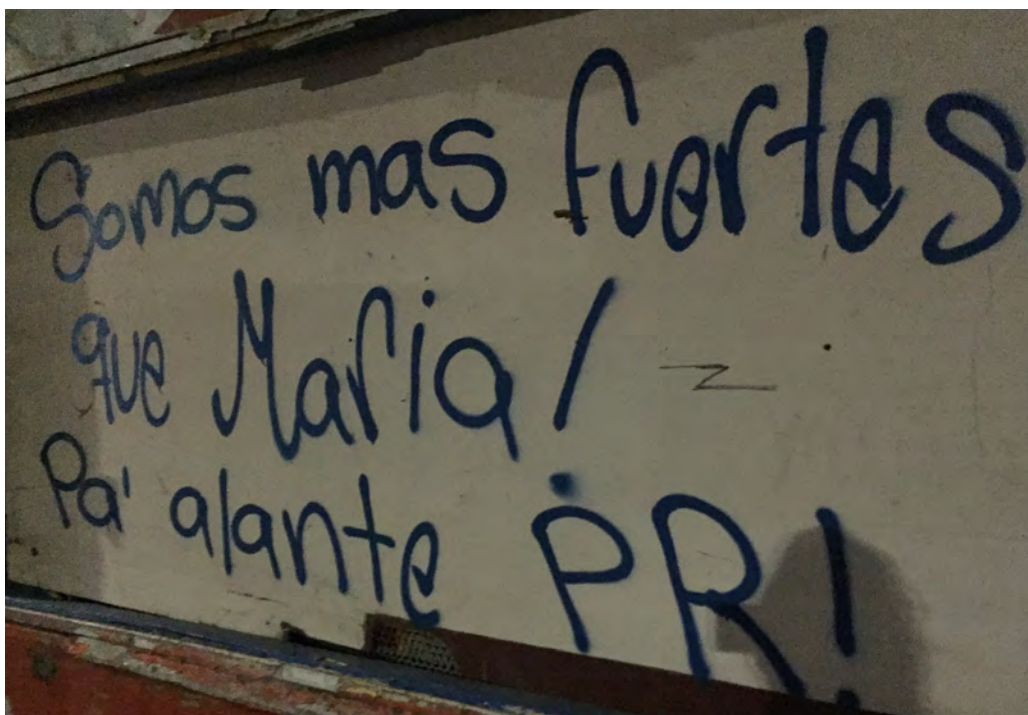 Somos mas fuertes
que Maria!
Pa' alante PR!